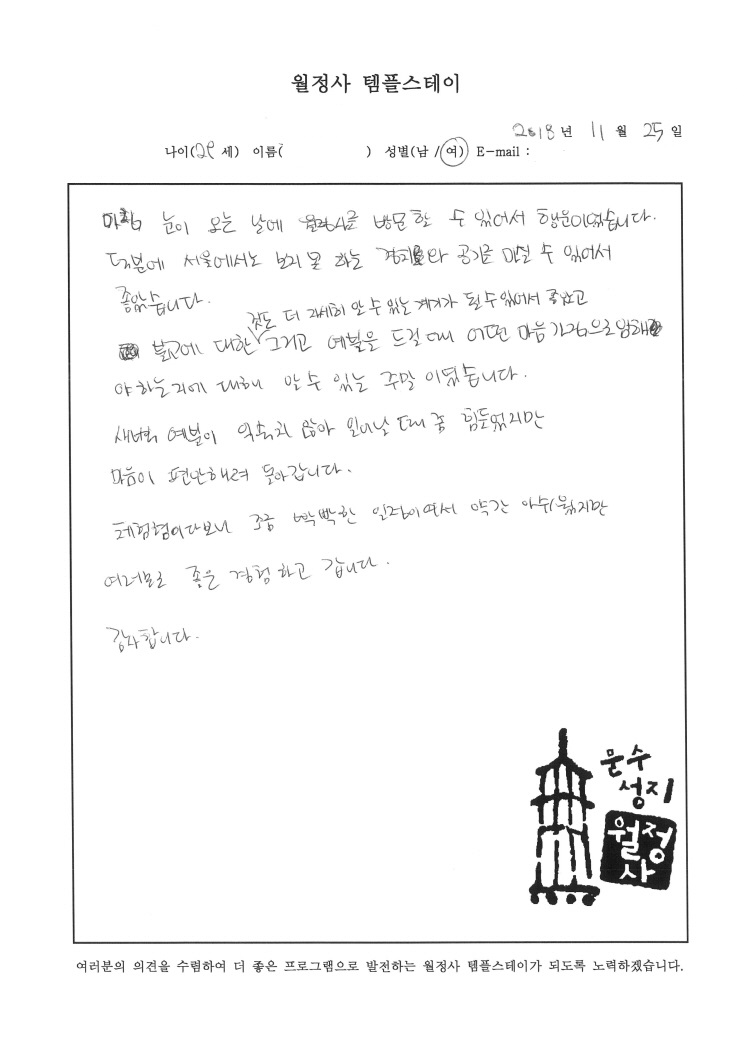 월정사 템플스테이
2018년 11월 25일
나이(29세) 이름( ) 성별(남 /여) E-mail :
마침 눈이 오는 날에 월정사를 방문할 수 있어서 행운이였습니다.
덕분에 서울에서는 보지 못 하는 경치와 공기를 마실 수 있어서
좋았습니다.
것도 더 자세히 알 수 있는 계기가 될 수 있어서 좋았고
불교에 대한 그리고 예불을 드릴 때 어떤 마음가짐으로 임해
야 하는지에 대해 알 수 있는 주말 이였습니다.
새벽 예불이 익숙치 않아 일어날 때 좀 힘들었지만
마음이 편안해져 돌아갑니다.
체험형이다보니 조금 빡빡한 일정이여서 약간 아쉬웠지만
여러모로 좋은 경험 하고 갑니다.
감사합니다.
문수
성지
월정
사
여러분의 의견을 수렴하여 더 좋은 프로그램으로 발전하는 월정사 템플스테이가 되도록 노력하겠습니다.